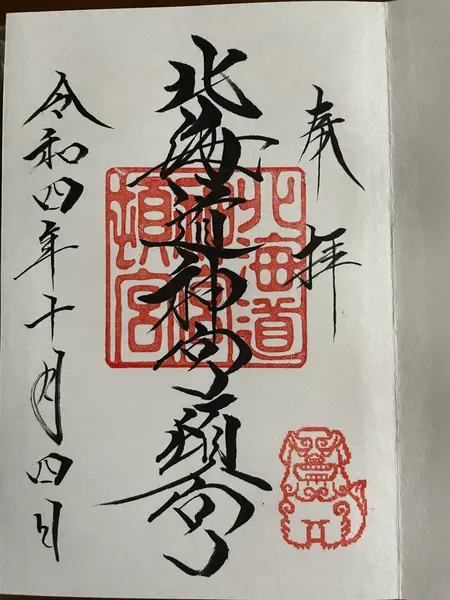 奉拝
北海道神宮頓宮
北海道
神宮
頓宮
令和四年十月四日